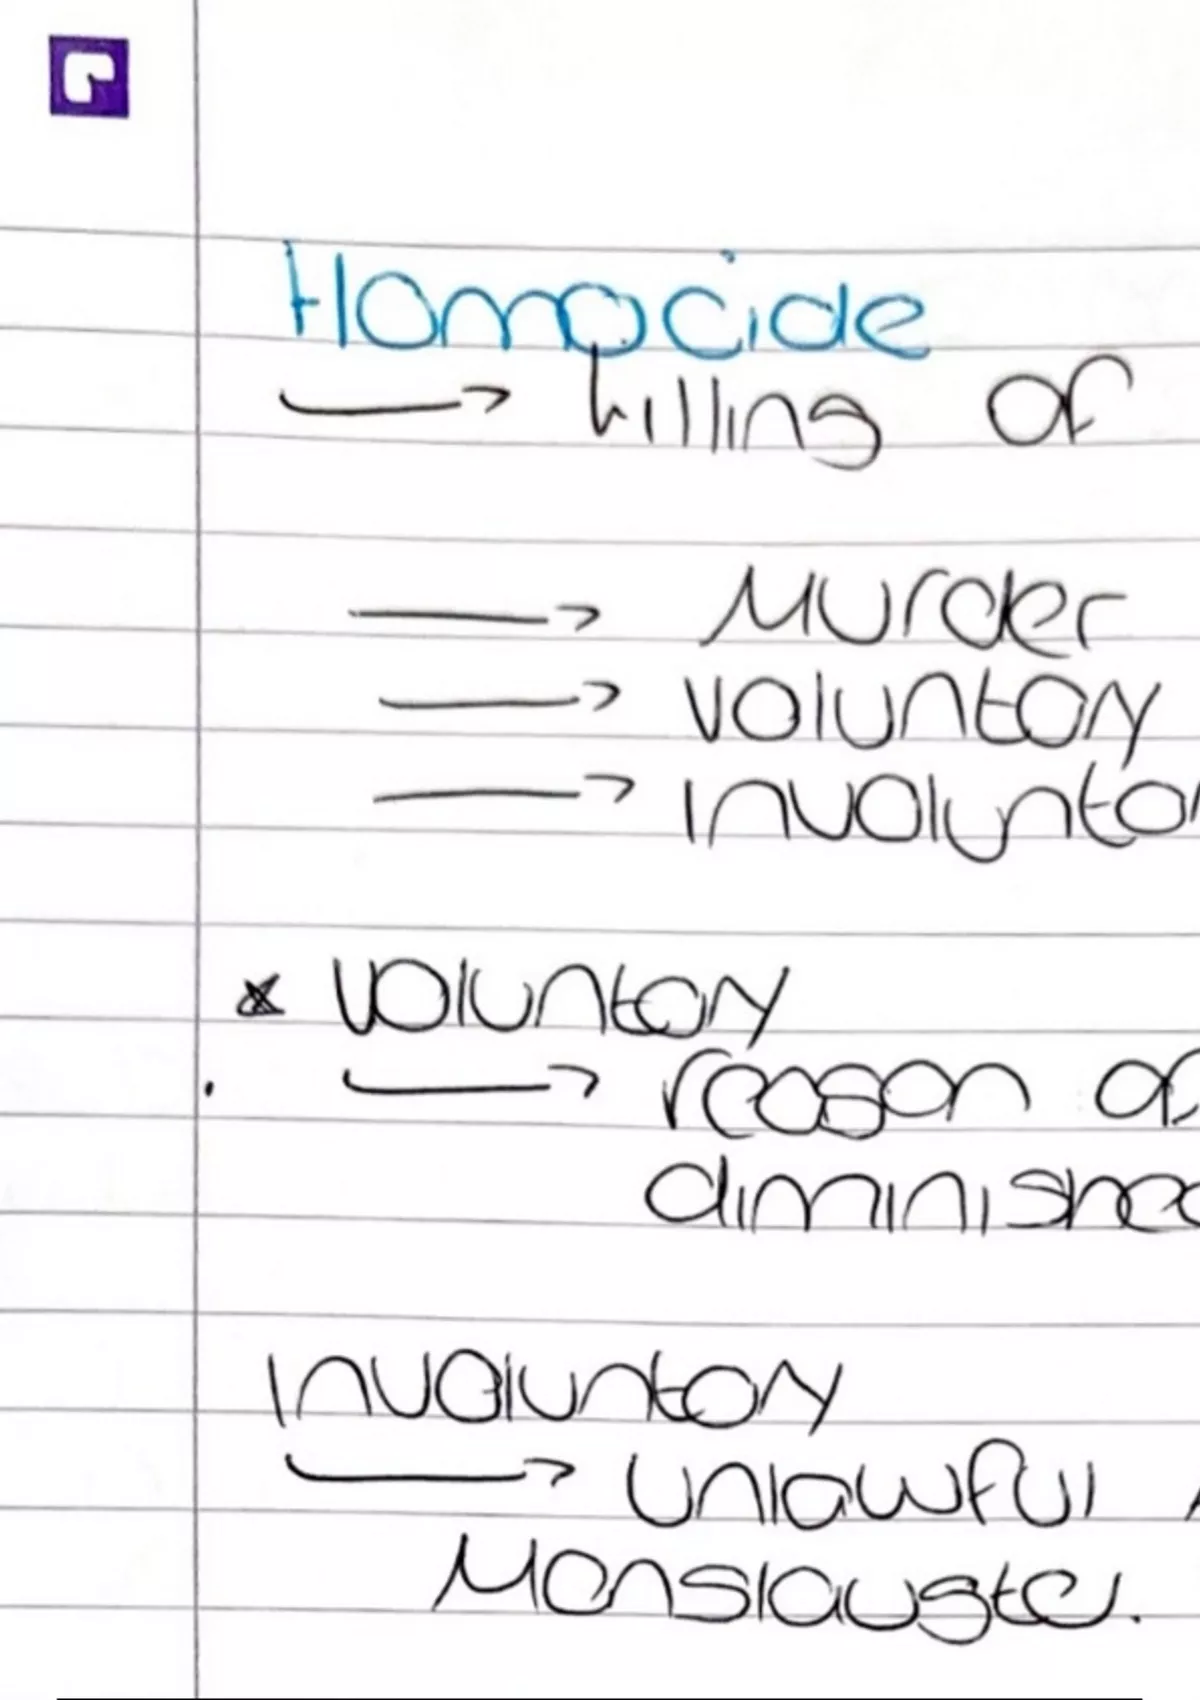 Homocide
→ killing of
→ Murder
→ voluntary
→ involuntar
* voluntary
→ reason of
diminishe
involuntary
→ unlawful
Manslaugte.